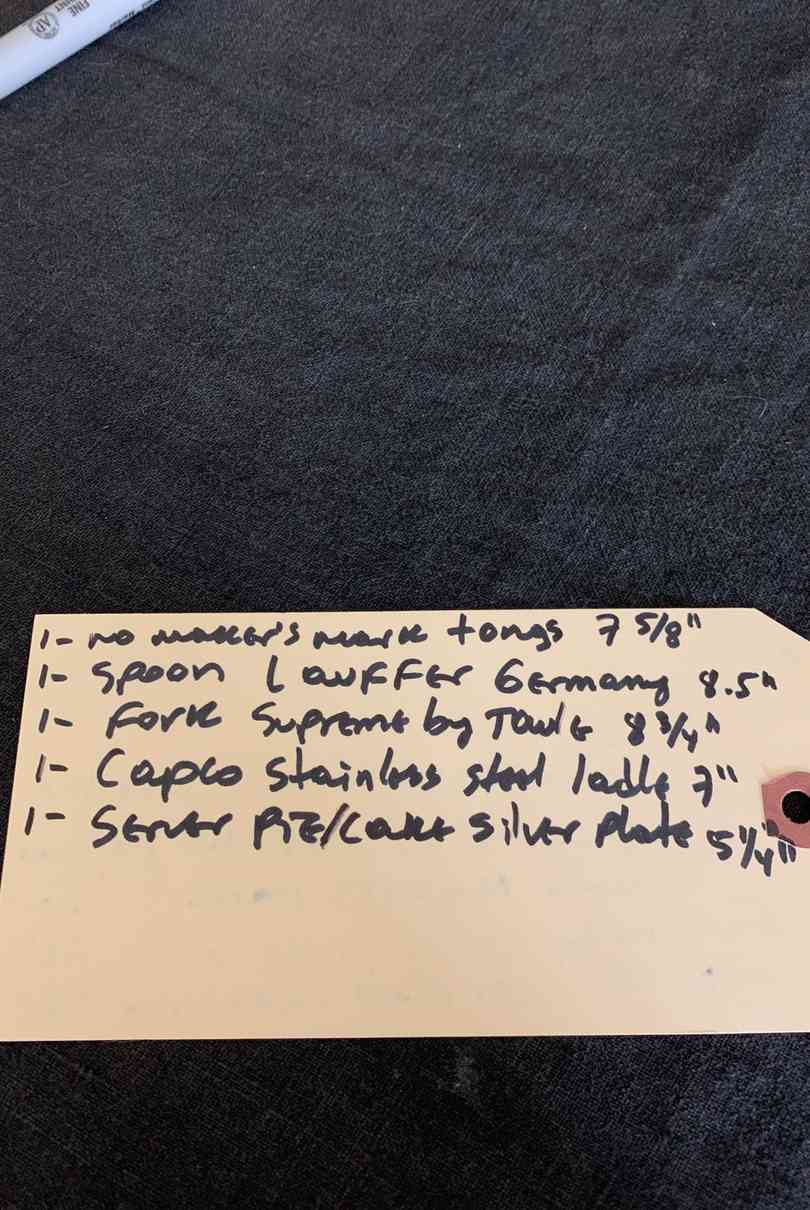 FINE
AP
1- no maker's mark tongs 7 5/8"
1- Spoon Lauffer Germany 8.5"
1- Fork Supreme by Towle 8 3/4"
1- Capco stainless steel ladle 7"
1- Server Pie/Cake silver plate 5 1/4"